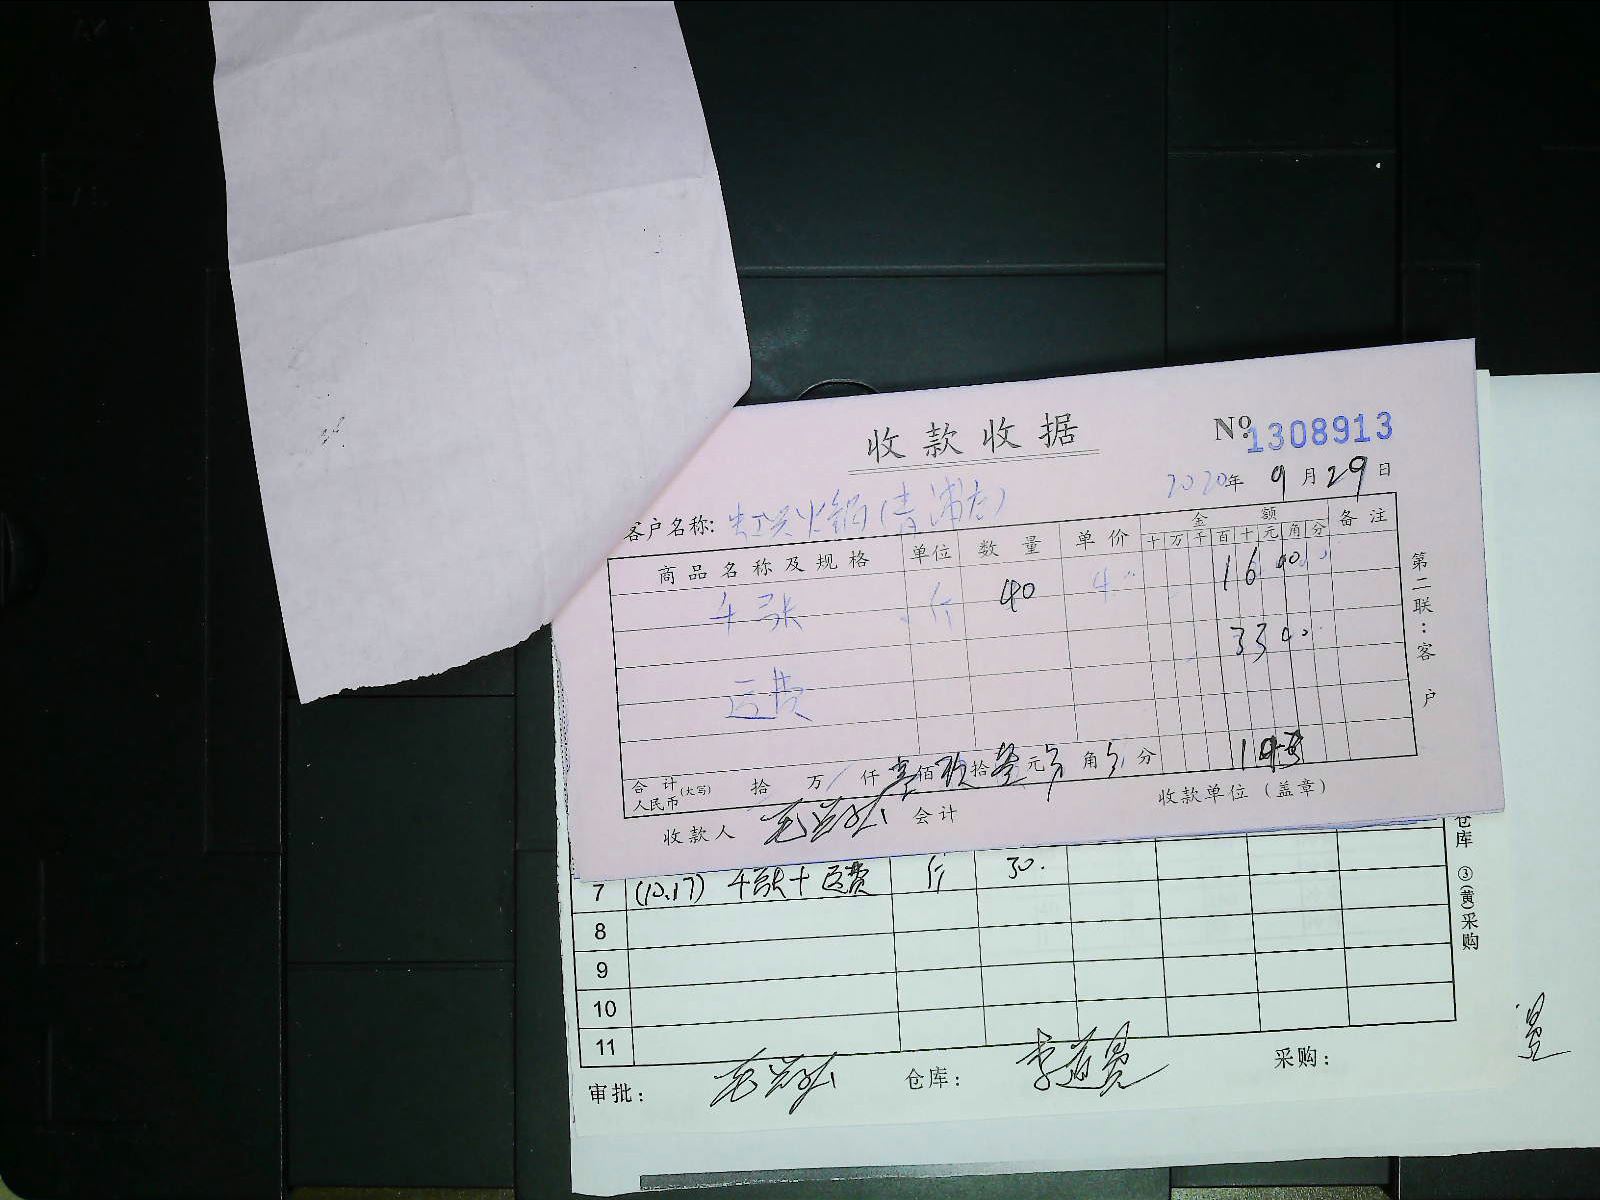 收款收据
No 1308913
2020年 9月29日
客户名称: 火锅(青浦店)
商品名称及规格 单位 数量 单价 金额 备注
十万千百十元角分
千张 斤 40 4 16000
运费 3300
合计人民币(大写) 拾 万 仟 壹佰玖拾叁元 角 分 193
收款人 会计 收款单位(盖章)
第二联:客户
7 (10.17) 千张+运费 斤 30.
8
9
10
11
仓库 ③(黄)采购
审批: 仓库: 采购: